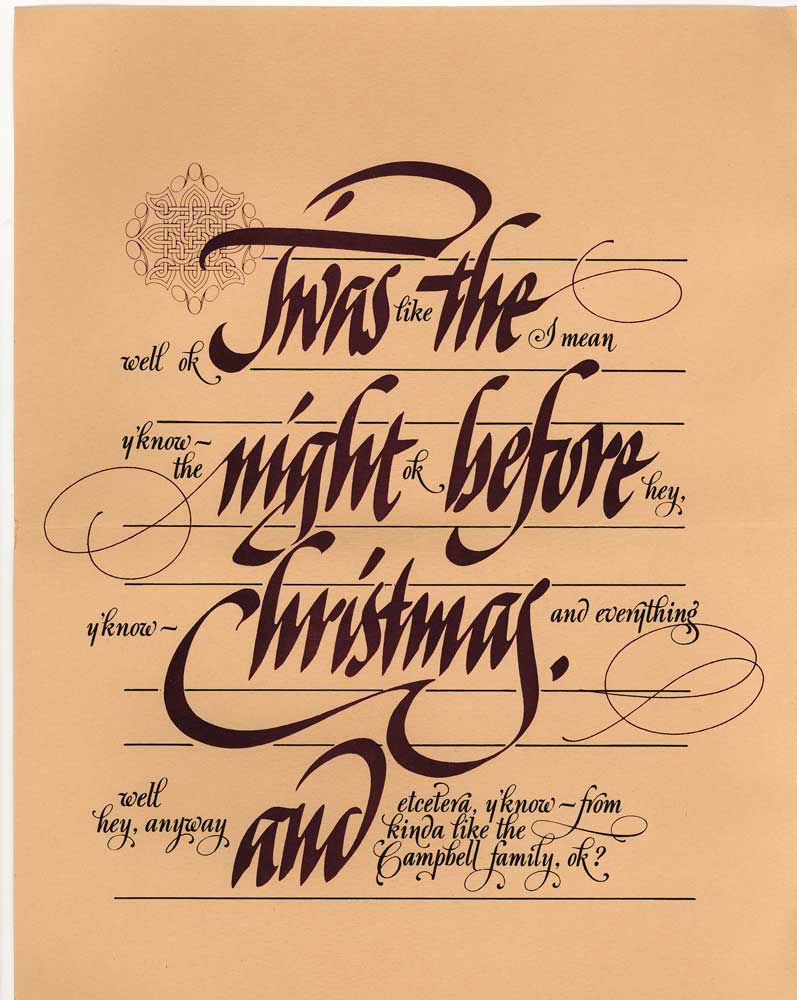 well ok 'Twas like the I mean
y'know~ the night ok before hey,
y'know~ Christmas. and everything
well hey, anyway and etcetera, y'know~from
kinda like the
Campbell family, ok?